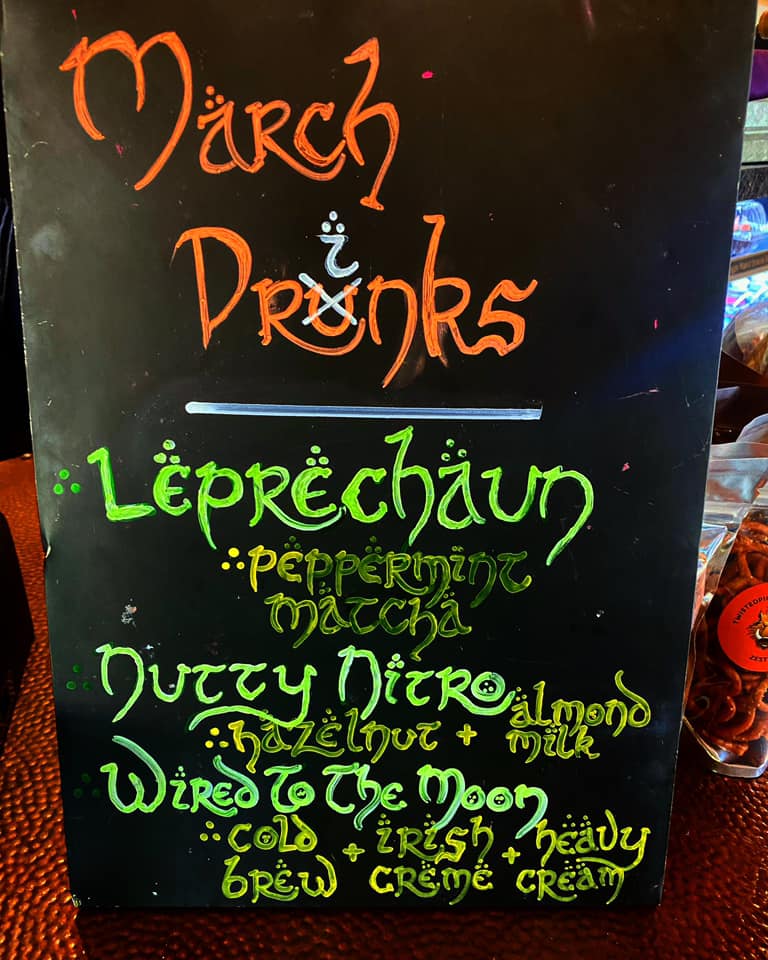 March
i
Drunks
Leprechaun
Peppermint
Matcha
Nutty Nitro
hazelnut + almond milk
Wired To The Moon
cold brew + irish creme + heavy cream